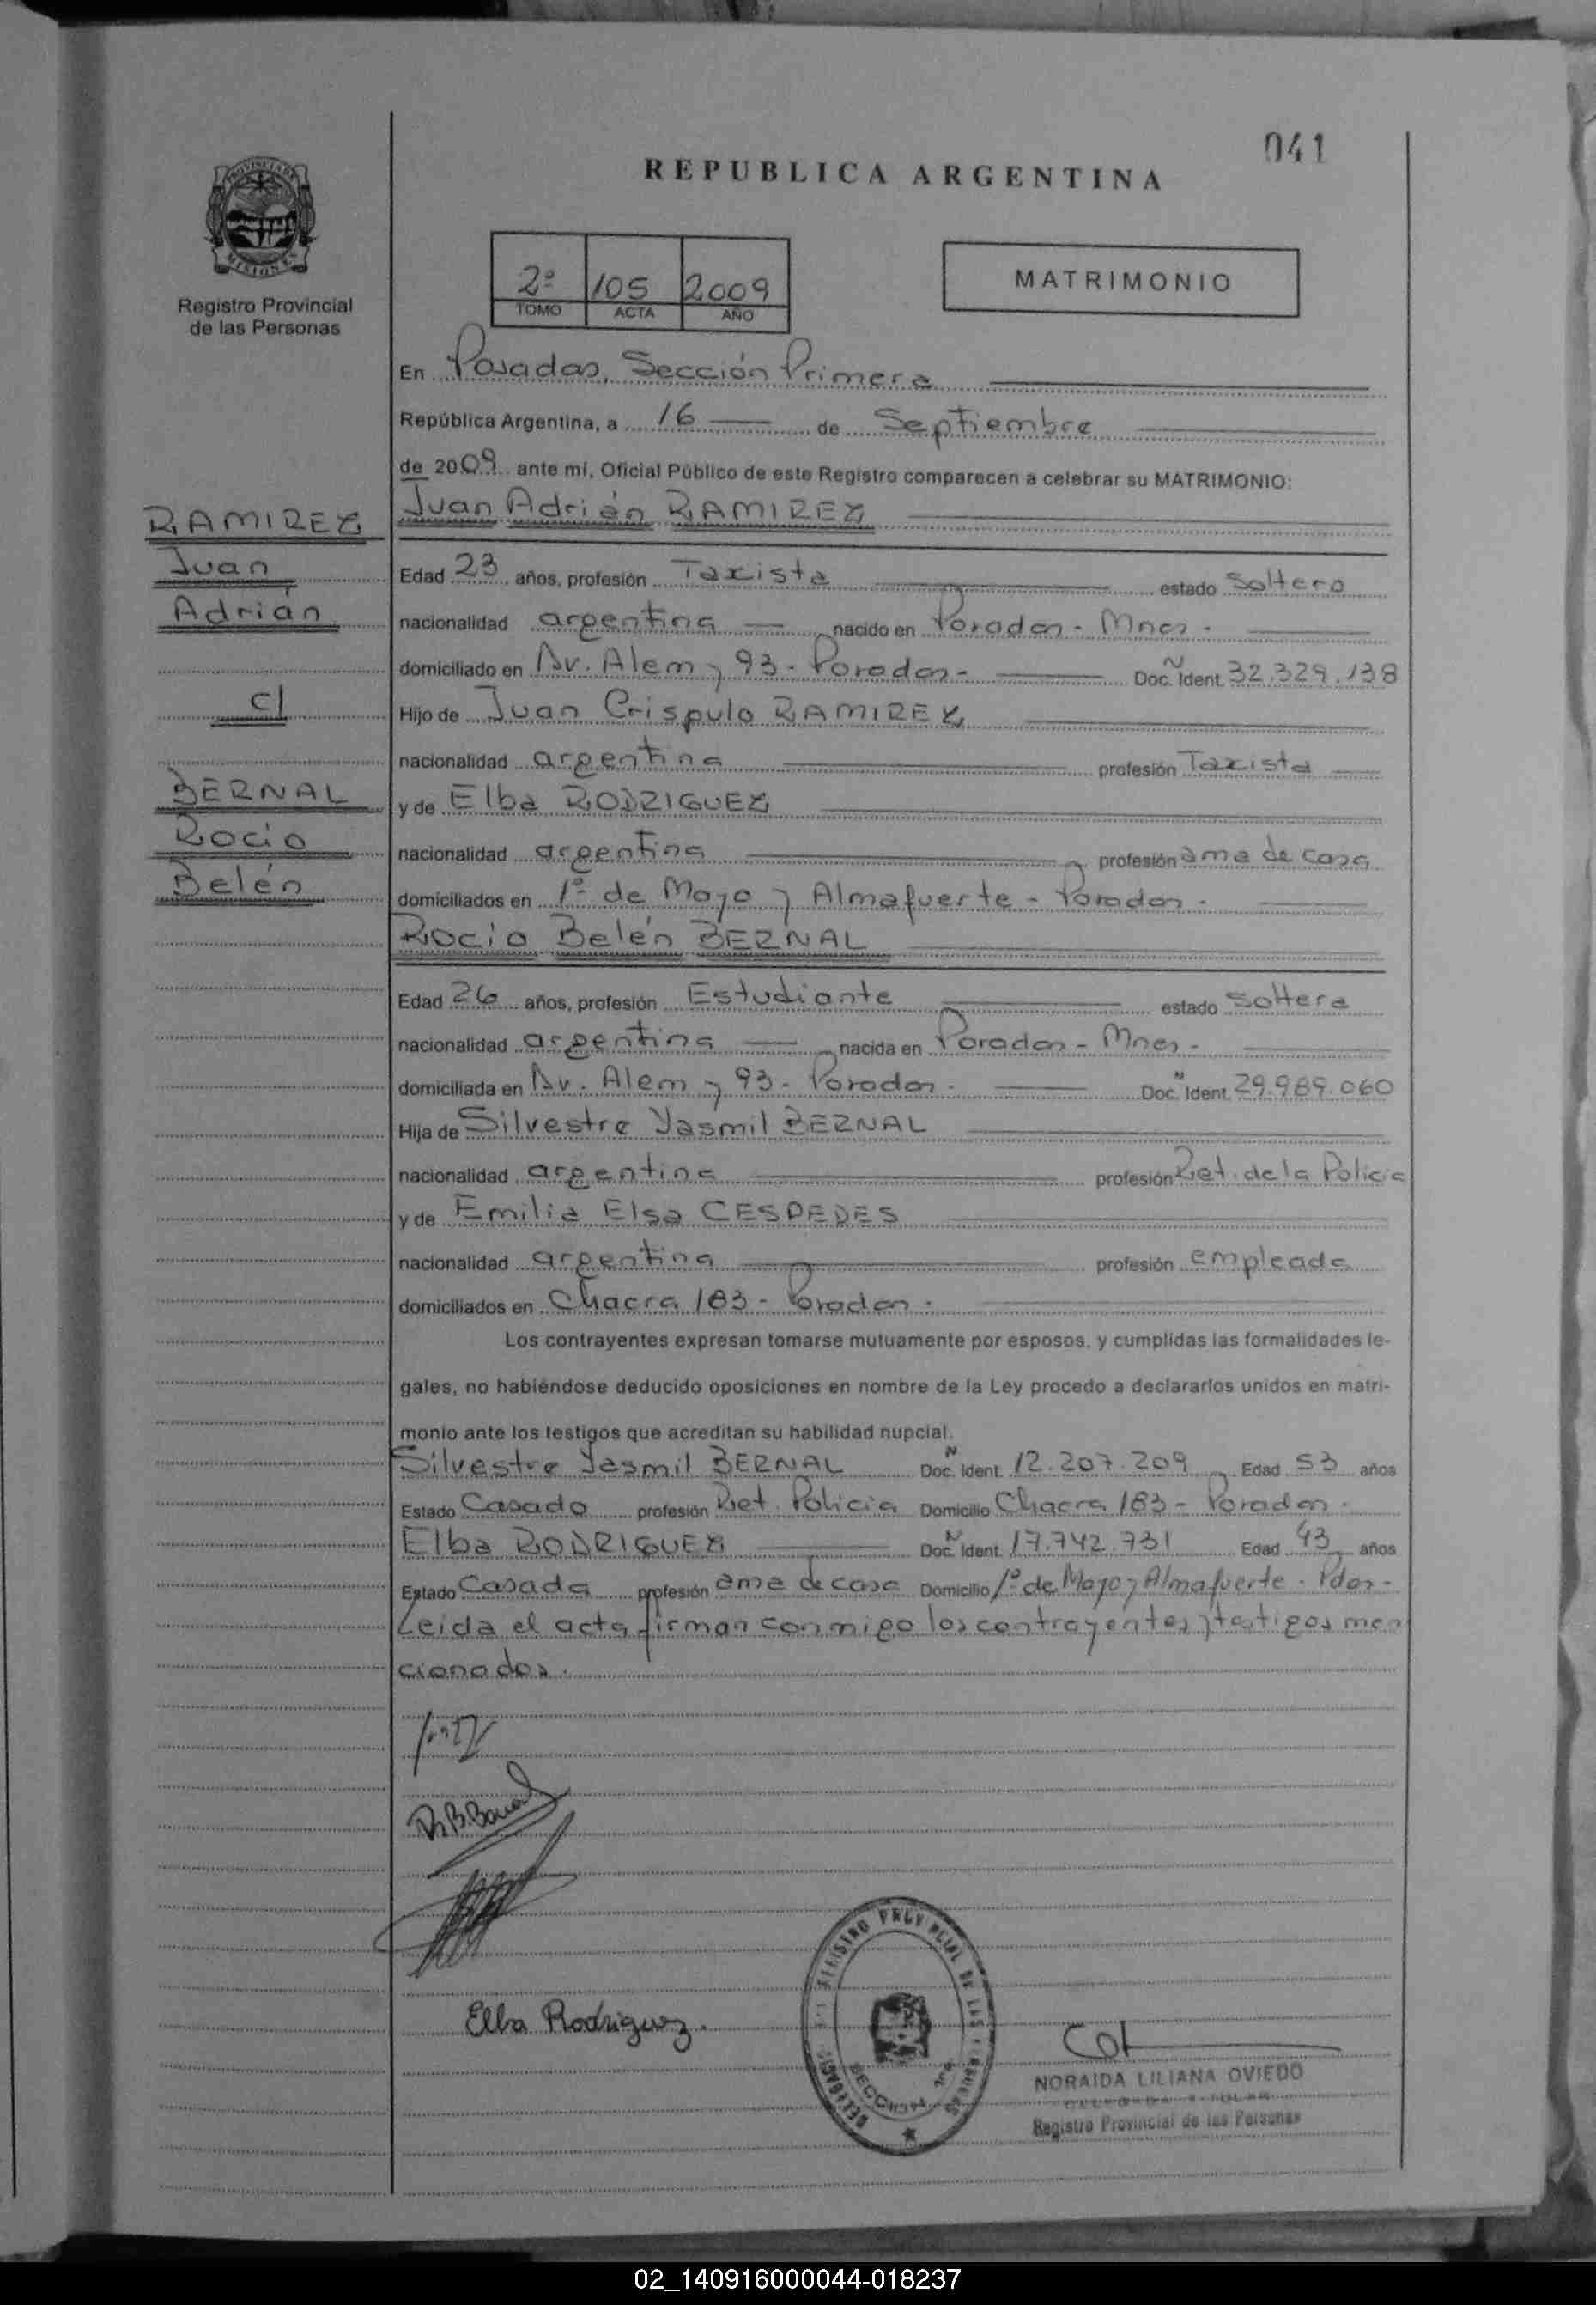 041
REPUBLICA ARGENTINA
PROVINCIA DE
MISIONES
Registro Provincial
de las Personas
2º 105 2009
TOMO ACTA AÑO
MATRIMONIO
En Posadas, Sección Primera
República Argentina, a 16 de Septiembre
de 2009 ante mí, Oficial Público de este Registro comparecen a celebrar su MATRIMONIO:
RAMIREZ
Juan
Adrián
c/
BERNAL
Rocio
Belén
Juan Adrián RAMIREZ
Edad 23 años, profesión Taxista estado Soltero
nacionalidad argentina nacido en Posadas - Mnes -
domiciliado en Av. Alem y 93 - Posadas - Doc. Ident. Nº 32.329.138
Hijo de Juan Crispulo RAMIREZ
nacionalidad argentina profesión Taxista
y de Elba RODRIGUEZ
nacionalidad argentina profesión ama de casa
domiciliados en 1º de Mayo y Almafuerte - Posadas -
Rocio Belén BERNAL
Edad 26 años, profesión Estudiante estado Soltera
nacionalidad argentina nacida en Posadas - Mnes -
domiciliada en Av. Alem y 93 - Posadas - Doc. Ident. Nº 29.989.060
Hija de Silvestre Yasmil BERNAL
nacionalidad argentina profesión Ret. de la Policia
y de Emilia Elsa CESPEDES
nacionalidad argentina profesión empleada
domiciliados en Chacra 183 - Posadas -
Los contrayentes expresan tomarse mutuamente por esposos, y cumplidas las formalidades le-
gales, no habiéndose deducido oposiciones en nombre de la Ley procedo a declararlos unidos en matri-
monio ante los testigos que acreditan su habilidad nupcial.
Silvestre Yasmil BERNAL Doc. Ident. Nº 12.207.209 Edad 53 años
Estado Casado profesión Ret. Policia Domicilio Chacra 183 - Posadas -
Elba RODRIGUEZ Doc. Ident. Nº 17.742.731 Edad 43 años
Estado Casada profesión ama de casa Domicilio 1º de Mayo y Almafuerte - Pdas -
Leida el acta firman conmigo los contrayentes y testigos men
cionados.
Elba Rodriguez.
REGISTRO PROVINCIAL DE LAS PERSONAS
NORAIDA LILIANA OVIEDO
Registro Provincial de las Personas
02_140916000044-018237